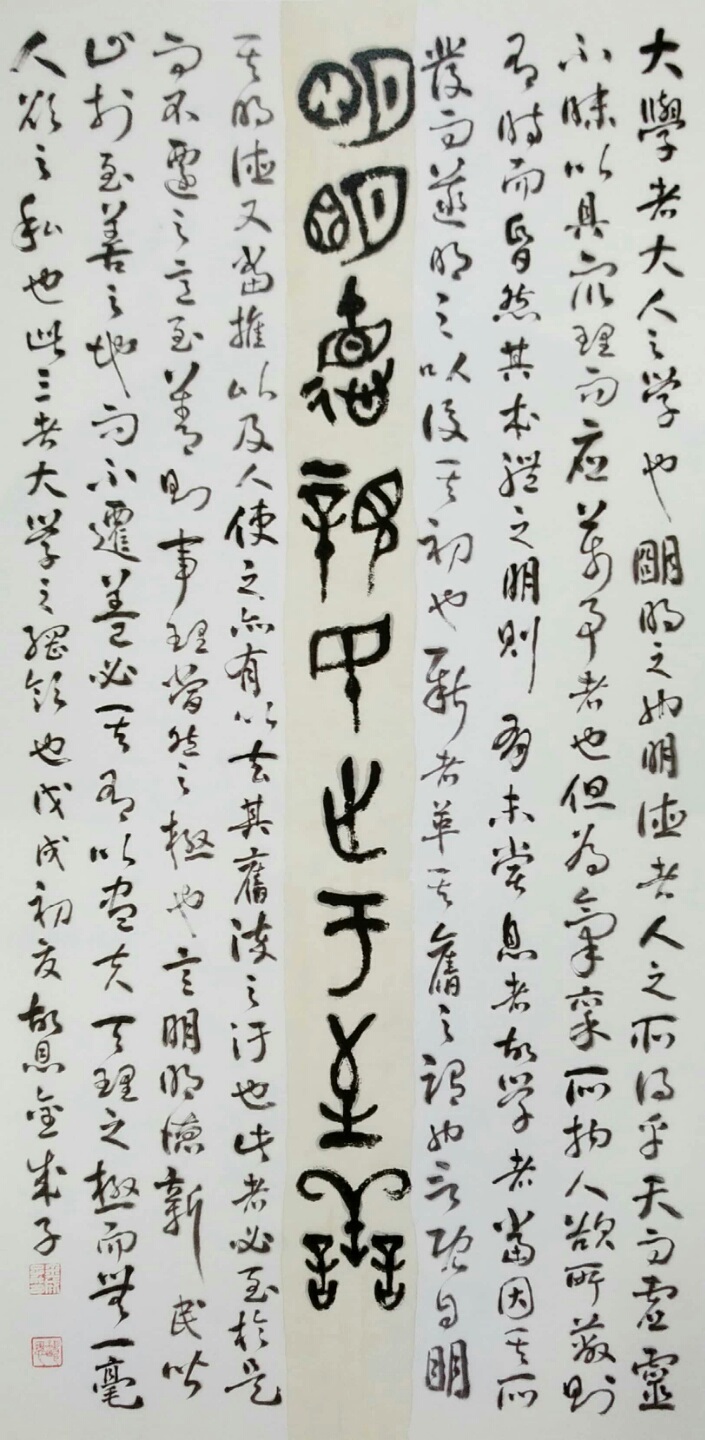 大學者大人之学也明明之也明德者人之所得乎天而虛靈
不昧以具众理而應萬事者也但為氣稟所拘人欲所蔽則
有時而昏然其本體之明則有未嘗息者故学者當因其所
發而遂明之以復其初也新者革其舊之謂也言既自明
明明德新民止于至善
其明德又當推以及人使之亦有以去其舊染之汙也止者必至於是
而不遷之意至善則事理當然之極也言明明德新民皆
止於至善之地而不遷蓋必其有以盡夫天理之極而無一毫
人欲之私也此三者大学之綱領也戊戌初夏